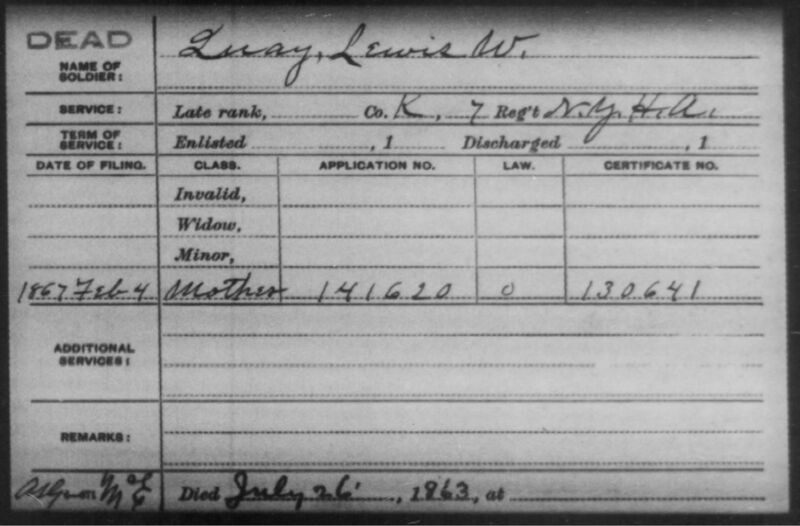 DEAD
NAME OF SOLDIER: Quay, Lewis W.
SERVICE: Late rank, Co. K, 7 Reg't N.Y.H.A.
TERM OF SERVICE: Enlisted , 1 Discharged , 1
DATE OF FILING. CLASS. APPLICATION NO. LAW. CERTIFICATE NO.
Invalid,
Widow,
Minor,
1867 Feb 4 Mother 141620 0 130641
ADDITIONAL SERVICES:
REMARKS:
Died July 26, 1863, at